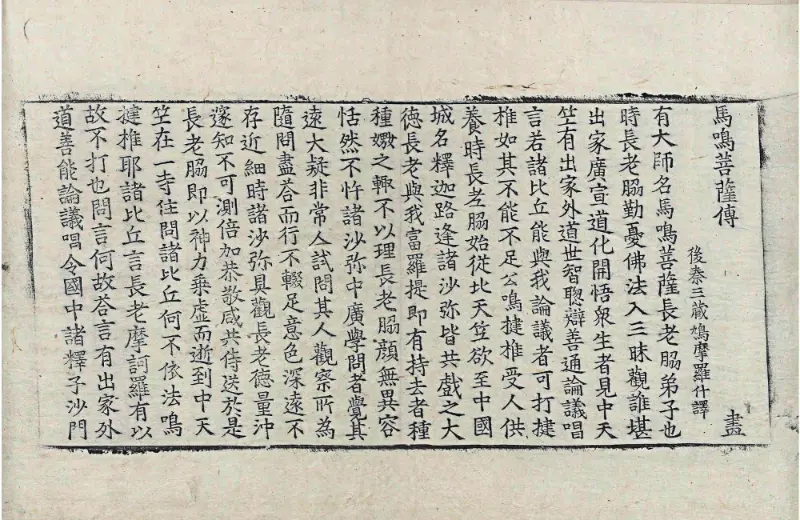 馬鳴菩薩傳　盡
後秦三藏鳩摩羅什譯
有大師名馬鳴菩薩長老脇弟子也
時長老脇勤憂佛法入三昧觀誰堪
出家廣宣道化開悟衆生者見中天
竺有出家外道世智聰辯善通論議唱
言若諸比丘能與我論議者可打揵
椎如其不能不足公鳴揵椎受人供
養時長老脇始從北天竺欲至中國
城名釋迦路逢諸沙弥皆共戲之大
徳長老與我富羅提即有持去者種
種嬓之輙不以理長老脇顔無異容
恬然不忤諸沙弥中廣學問者覺其
遠大疑非常人試問其人觀察所為
隨問盡荅而行不輟足意色深遠不
存近細時諸沙弥具觀長老徳量沖
邃知不可測倍加恭敬咸共侍送於是
長老脇即以神力乘虛而逝到中天
竺在一寺住問諸比丘何不依法鳴
揵椎耶諸比丘言長老摩訶羅有以
故不打也問言何故荅言有出家外
道善能論議唱令國中諸釋子沙門